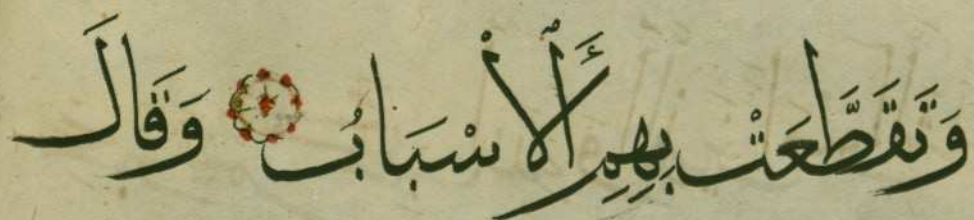 وَتَقَطَّعَتْ بِهِمُ الْأَسْبَابُ ۝ وَقَالَ